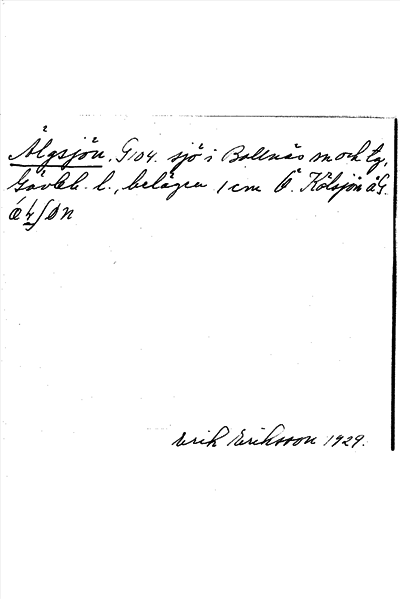 Älgsjön. G104. sjö i Bollnäs sn och tg,
Gävleb. l., belägen 1 cm Ö. Kölsjön å G.
Erik Eriksson 1929.